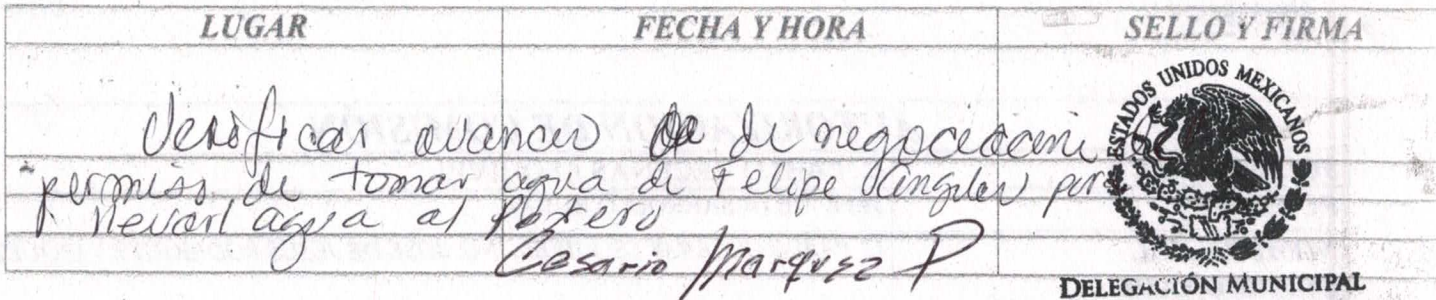 LUGAR FECHA Y HORA SELLO Y FIRMA
Verificar avances de negociacion
permiso de tomar agua de Felipe Angeles par
llevar agua al Potrero
Cesario Marquez P
ESTADOS UNIDOS MEXICANOS
DELEGACIÓN MUNICIPAL